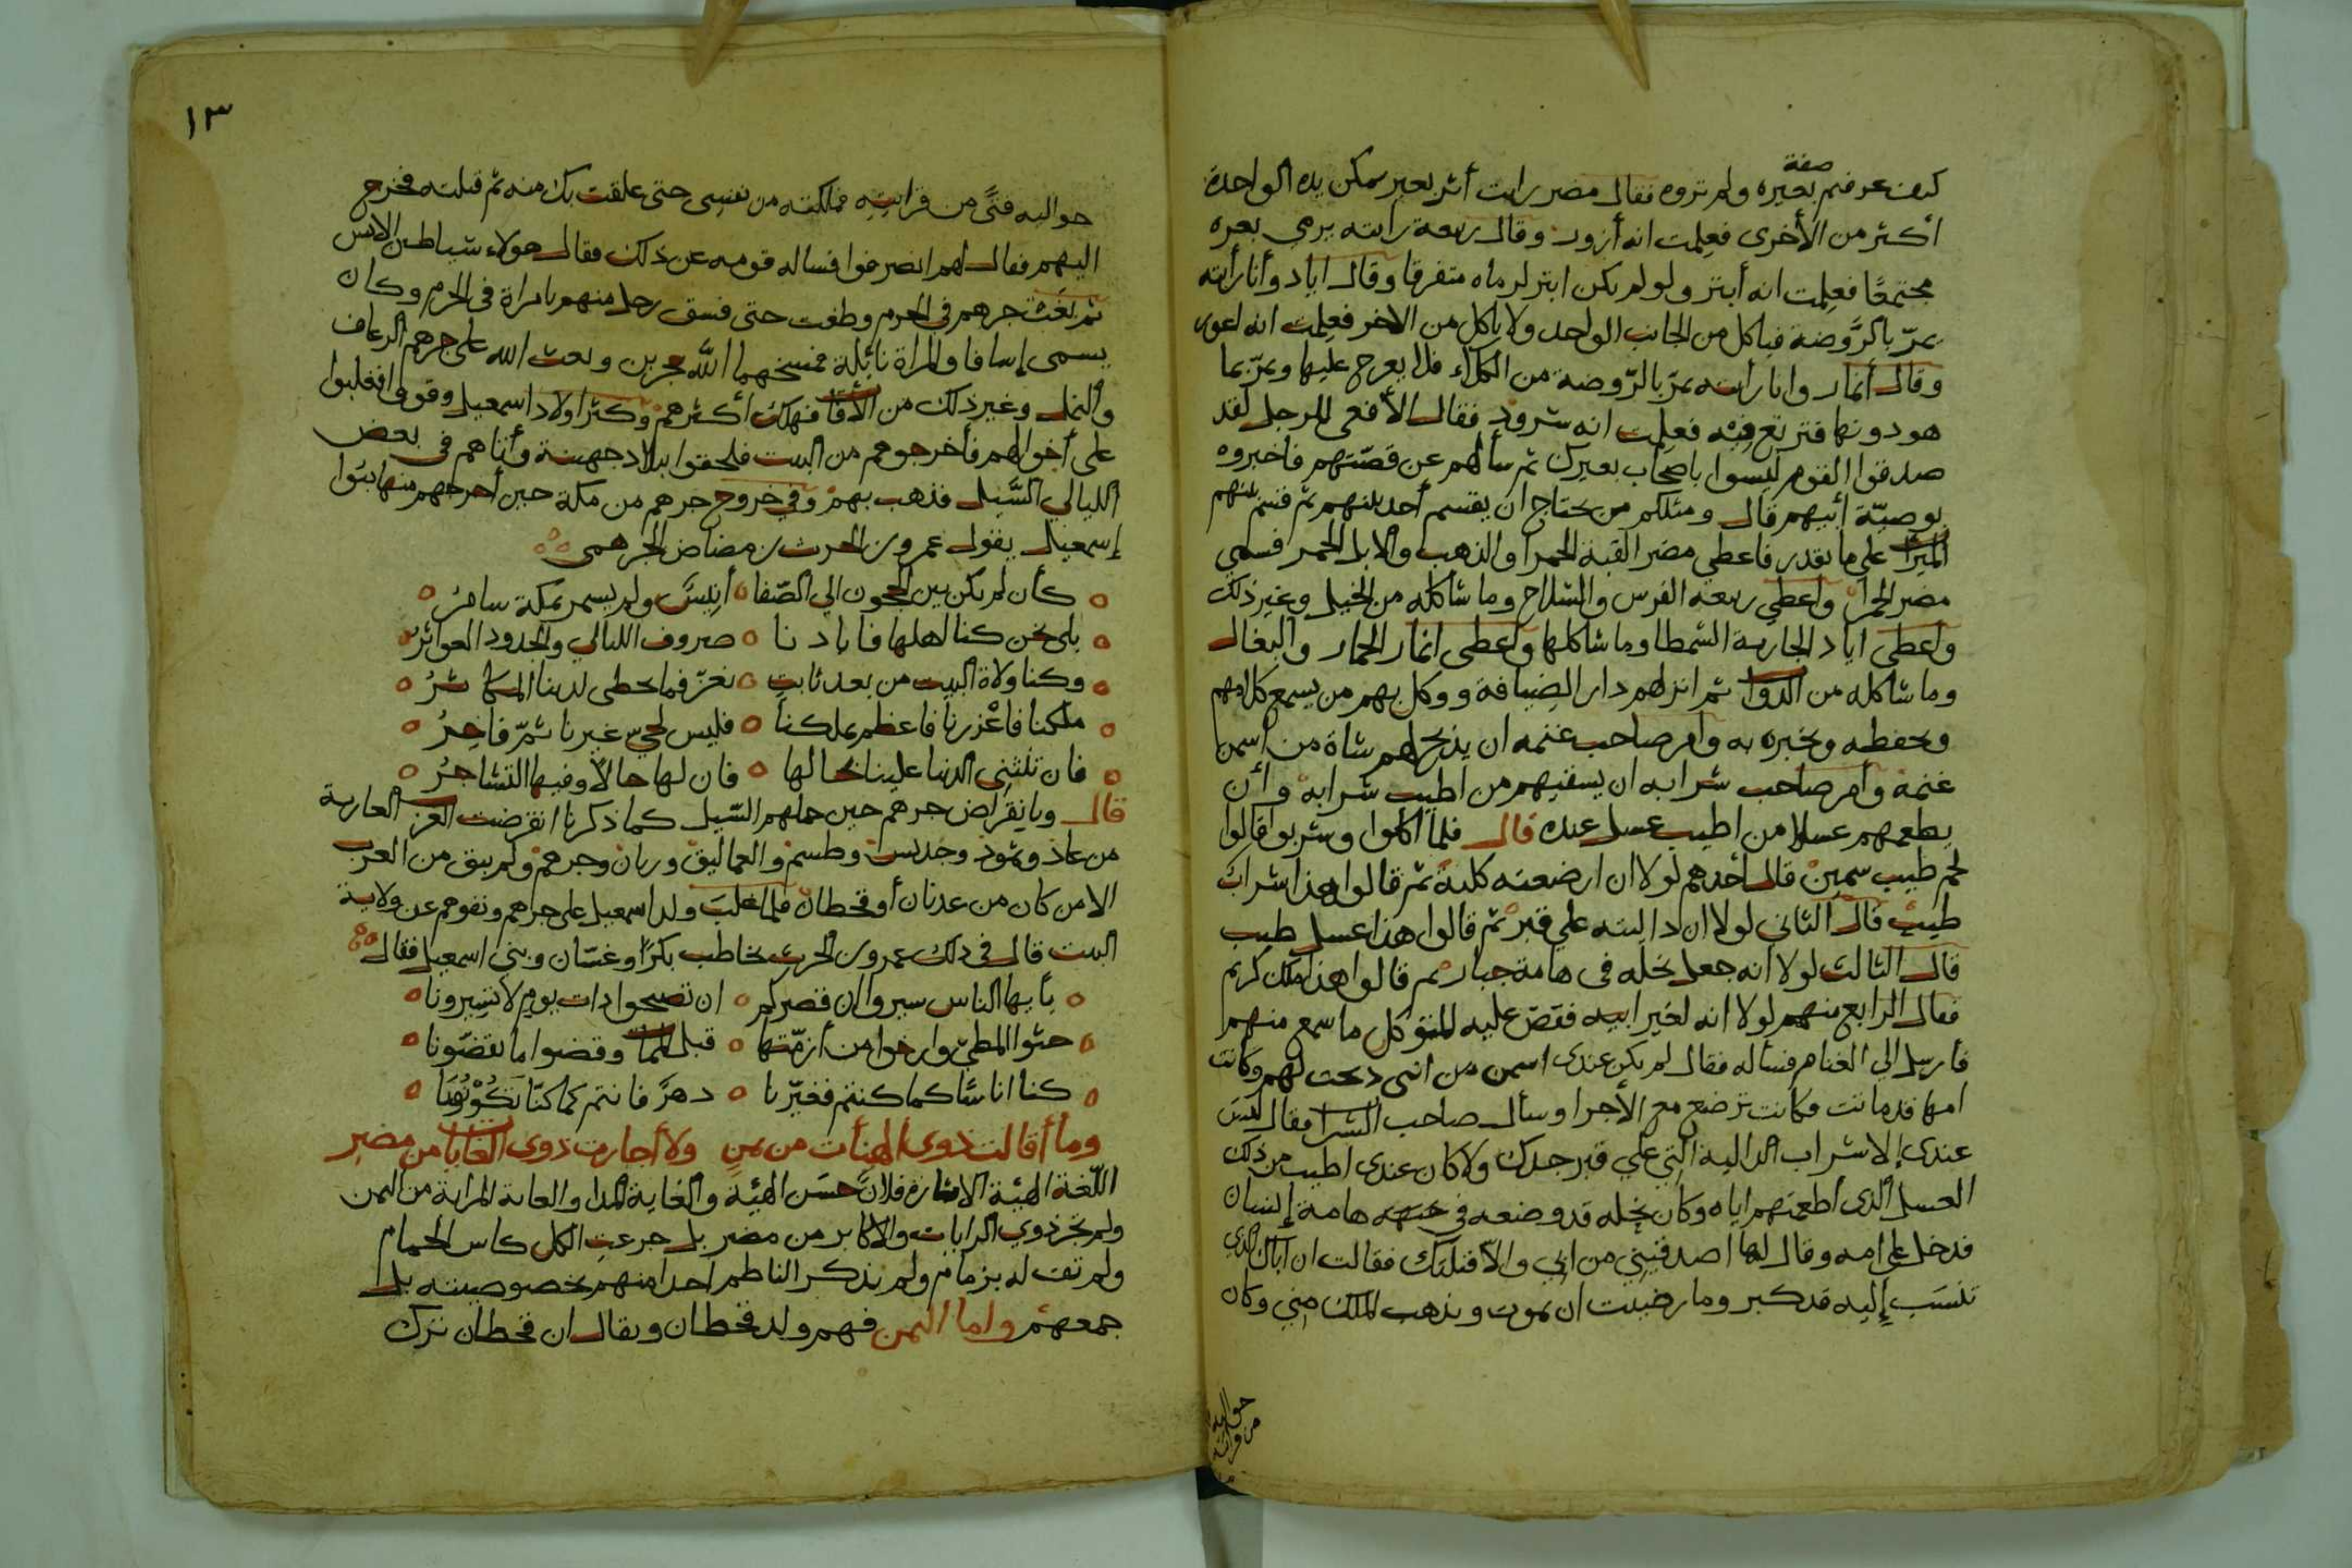 صفة
كيف عرفتم بعيره ولم تروه فقال مضر رايت أثر بعير يمكن يده الواحدة
أكثر من الأخرى فعلمت انه أزور وقال ربيعة رايته يرمي بعره
مجتمعًا فعلمت انه أبتر ولو لم يكن ابتر لرماه متفرقا وقال اياد وأنا رأيته
يمرّ بالرَّوضة فياكل من الجانب الواحد ولا ياكل من الاخر فعلمت انه اعور
وقال أنمار وانا رأيته يمرّ بالرّوضة من الكلاء فلا يعرج عليها ويمرّ بما
هو دونها فترتع فيه فعلمت انه شرود فقال الأفعى للرجل لقد
صدقوا القوم ليسوا باصحاب بعيرك ثم سألهم عن قصّتهم فاخبروه
بوصيّة أبيهم قال ومثلكم من يحتاج ان يقسم أحد بينهم ثم قسم بينهم
الميراث على ما يقدر فاعطي مضر القبة الحمرا والذهب والابل الحمر فسمي
مضر الحمرا واعطي ربيعه الفرس والسلاح وما شاكله من الخيل وغير ذلك
واعطى اياد الجارية الشمطا وما شاكلها واعطى انمار الحمار والبغال
وما شاكله من الدواب ثم انزلهم دار الضيافة ووكل بهم من يسمع كلامهم
ويحفظه ويخبره به وامر صاحب غنمه ان يذبح لهم شاة من اسمن
غنمه وامر صاحب شرابه ان يسقيهم من اطيب شرابه وأن
يطعمهم عسلا من اطيب عسل عنده قال فلما اكلوا وشربوا قالوا
لحم طيب سمين قال أحدهم لولا ان ارضعته كلبة ثم قالوا هذا شراب
طيب قال الثاني لولا ان داليته علي قبر ثم قالوا هذا عسل طيب
قال الثالث لولا انه جعل نحله في هامة جبار ثم قالوا هذا ملك كريم
فقال الرابع منهم لولا انه لغير ابيه فقصّ عليه المتوكل ما سمع منهم
فأرسل الي الغنام فسأله فقال لم يكن عندى اسمن من التى ذبحت لهم وكانت
امها قد ماتت فكانت ترضع مع الأجرا وسأل صاحب الشراب فقال ليس
عندى إلا شراب الدالية التي علي قبر جدك ولا كان عندى اطيب من ذلك
العسل الذى أطعمتهم اياه وكان نحله قد وضعه في هامة إنسان
فدخل على امه وقال لها اصدقيني من ابي والّا قتلتك فقالت ان أباك الذي
تنسب إليه قد كبر وما رضيت ان يموت ويذهب الملك مني وكان
حواليه
من قرابته
١٣
حواليه فتًى من قرابتِهِ فملكته من نفسى حتى علقت بك منه ثم قبلته فخرج
اليهم فقال لهم انصرفوا فساله قومه عن ذلك فقال هولاء شياطين الانس
ثم بغت جرهم في الحرم وطغت حتى فسق رجل منهم بامراة في الحرم وكان
يسمى إسافا والمراة نائلة فمسخهما اللّه حجرين وبعث الله على جرهم الرعاف
والنمل وغير ذلك من الأفات فهلك أكثرهم وكثر اولاد اسمعيل وقووا فغلبوا
على أخوالهم فأخرجوهم من البيت فلحقوا ببلاد جهينة وأتاهم في بعض
الليالي السَّيل فذهب بهم وفي خروج جرهم من مكة حين أخرجهم منها بنوا
إسمعيل يقول عمرو بن الحرث بن مضاض الجرهمى
كأن لم يكن بين الحجون الي الصّفا أنيس ولم يسمر بمكة سامرُ
بلى نحن كنا اهلها فابادنا صروف الليالي والجدود العواثر
وكنا ولاة البيت من بعد ثابت بعزّ فما يحظى لدينا المكاثرُ
ملكنا فاعْزرنا فاعظم بملكنا فليس لحيّ غيرنا ثمّ فاخرُ
فان تنثنى الدنيا علينا بحالها فان لها حالًا وفيها التشاجرُ
قال وبانقراض جرهم حين حملهم السّيل كما ذكرنا انقرضت العرب العاربة
من عاد وثمود وجديس وطسم والعماليق ورنان وجرهم ولم يبق من العرب
الا من كان من عدنان أو قحطان فلما غلب ولد اسمعيل على جرهم ونفوهم عن ولاية
البيت قال في ذلك عمرو بن الحرث يخاطب بكرًا وغسّان وبني اسمعيل فقال
يأيها الناس سيروا ان قصركم ان تصبحوا ذات يوم لا تسيرونا
حثوا المطيّ وارخوا من أزمّتها قبل الممات وقضوا ما تقضّونا
كنا اناسًا كما كنتم فغيّرنا دهرٌ فانتم كما كنّا تكونُونَا
وما أقالت ذوى الهيأت من يمنٍ ولا أجارت ذوى الغايات من مضرٍ
اللّغة الهيئة الاشارة فلان حسن الهيئة والغاية المدا والغاية الراية من اليمن
ولم تجز ذوي الرايات والاكابر من مضر بل جرعت الكل كاس الحمام
ولم تف له بزمام ولم يذكر الناظم احدا منهم بخصوصيته بل
جمعهم واما اليمن فهم ولد قحطان ويقال ان قحطان ترك